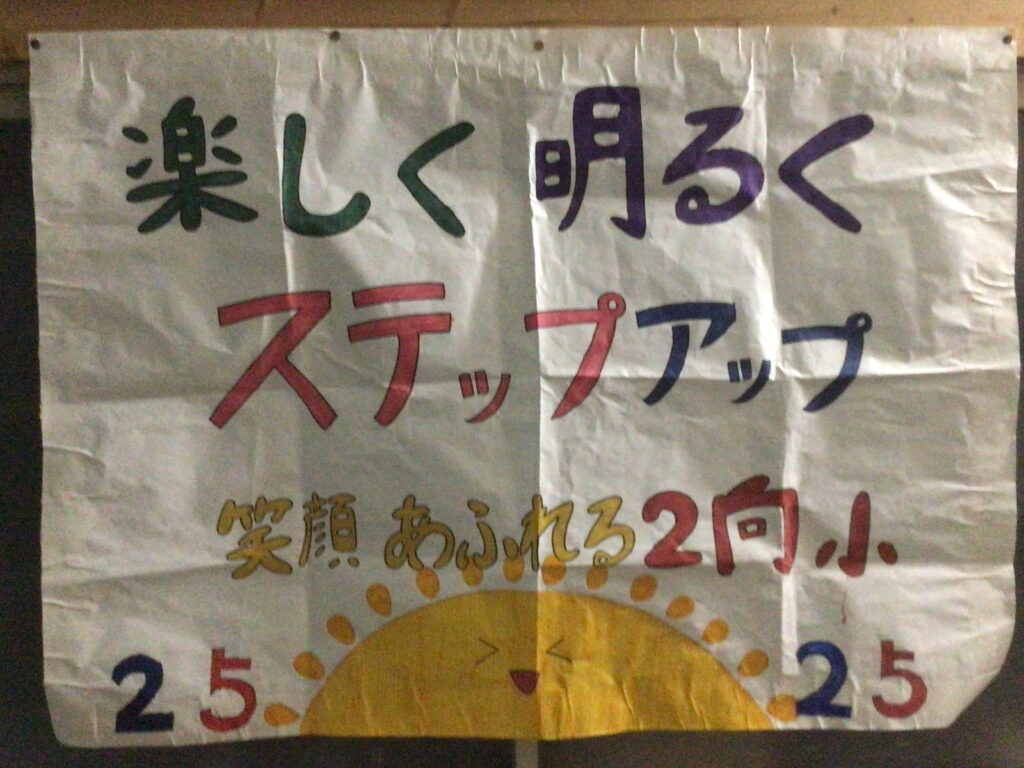 楽しく 明るく
ステップアップ
笑顔 あふれる 2向小
25 25